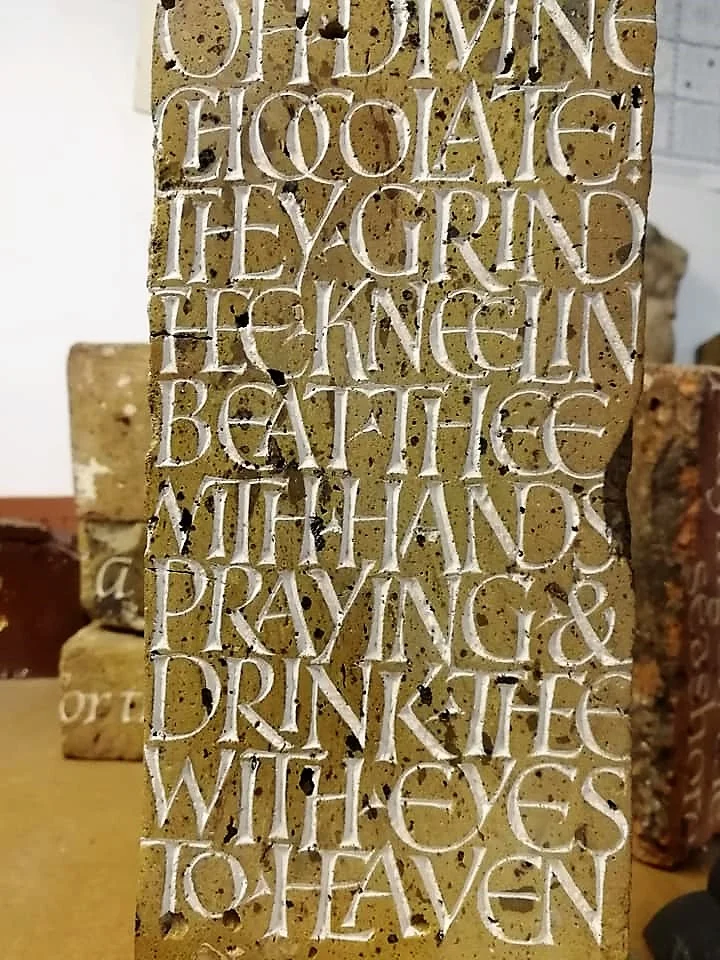 OH·DIVINE
CHOCOLATE!
THEY·GRIND
THEE KNEELIN
BEAT·THEE
WITH·HANDS
PRAYING &
DRINK·THEE
WITH·EYES
TO·HEAVEN
a
or